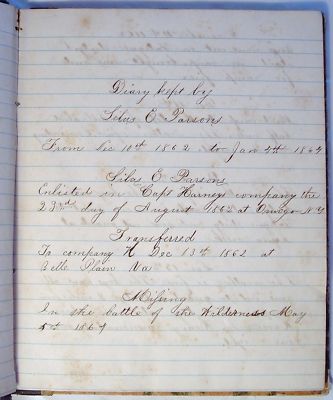 Diary kept by
Silas E Parsons
From Dec 10th 1862 to Jan 7th 1864
Silas E Parsons
Enlisted in Capt Harneys company the
23rd day of August 1862 at Owego N Y
Transferred
To company K Dec 13th 1862 at
Belle Plain Va
Missing
In the battle of the Wilderness May
5th 1864